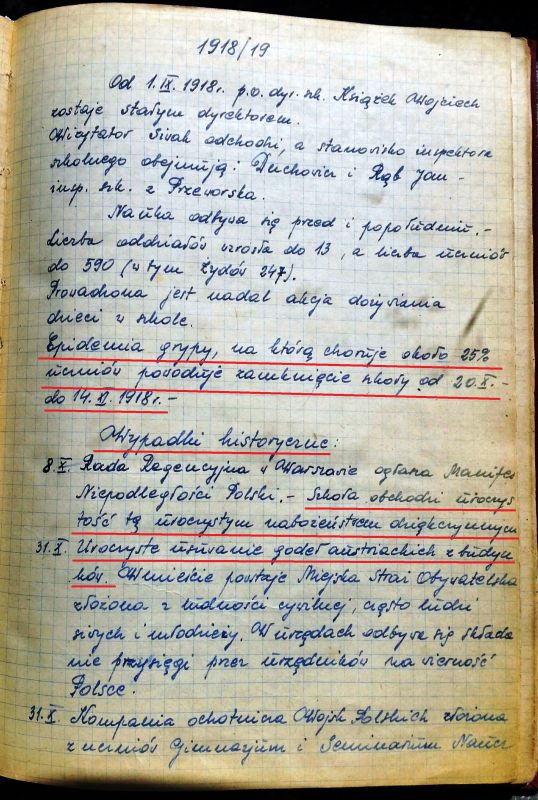 1918/19
Od 1.IX.1918r. p.o. dyr. szk. Książek Wojciech
zostaje stałym dyrektorem.
Wizytator Sivak odchodzi, a stanowisko inspektora
szkolnego obejmują: Duchowicz i Rąb Jan -
insp. szk. z Przeworska.
Nauka odbywa się przed i popołudniu.-
Liczba oddziałów wzrosła do 13, a liczba uczniów
do 590 (w tym Żydów 247).
Prowadzona jest nadal akcja dożywiania
dzieci w szkole.
Epidemia grypy, na którą choruje około 25%
uczniów powoduje zamknięcie szkoły od 20.X.-
do 14.XI.1918r.-
Wypadki historyczne:
8.X. Rada Regencyjna w Warszawie ogłasza Manifes
Niepodległości Polski.- Szkoła obchodzi uroczys
tość tą uroczystym nabożeństwem dziękczynnym
31.X. Uroczyste usuwanie godeł austriackich z budyn
ków. W mieście powstaje Miejska Straż Obywatelska
złożona z ludności cywilnej, często ludzi
siwych i młodzieży. W urzędach odbywa się składa
nie przysięgi przez urzędników na wierność
Polsce.
31.X. Kompania ochotnicza Wojsk Polskich złożona
z uczniów Gimnazjum i Seminarium Naucz